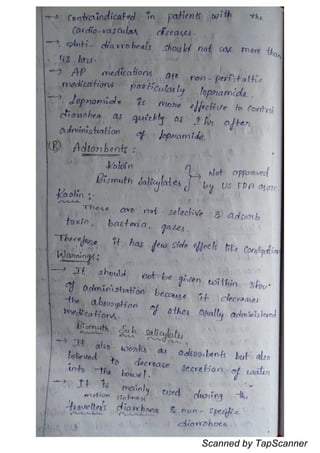 → Contraindicated in patients with the
cardio-vascular diseases.
→ Anti-diarroheals should not use more than
48 hrs.
→ AP medications are non-peristaltic
medications particularly lopramide.
→ Lopramide is more effective to control
diarrohea as quickly as 1 hr after
administration of lopramide.
(B) Adsorbents:
Kolain
Bismuth Salicylates } Not approved
by US FDA
Kaolin:-
These are not selective & adsorb
toxin, bacteria, gases.
Therefore it has few side effects like Constipation
Warnings:
→ It should not be given within 3 hr
of administration because it decreases
the absorption of other orally administered
medications.
Bismuth Sub Salicylate.
→ It also works as adsorbents but also
believed to decrease secretion of water
into the bowel.
→ It is mainly used during the
motion sickness
traveller's diarrohoea & non-specific
diarrohoea.
Scanned by TapScanner